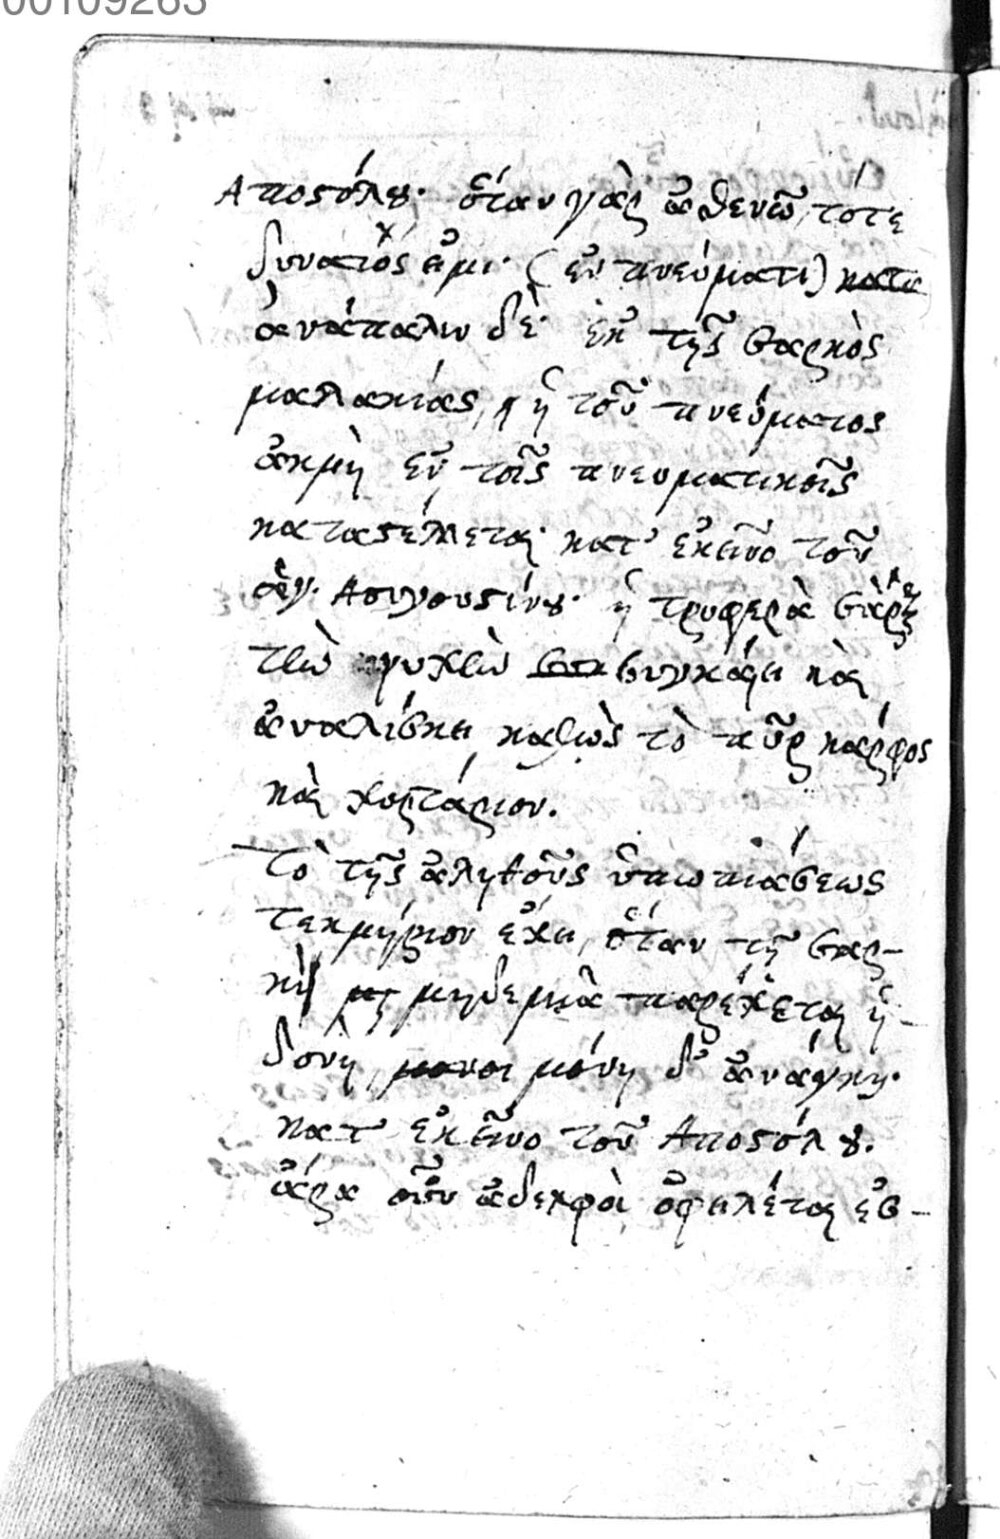 00109263
Αποστόλου· ὅταν γὰρ ἀσθενῶ, τότε
δυνατός εἰμι· (ἐν πνεύματι) κατα
ἀνάπαλιν δὲ· ἐκ τῆς σαρκὸς
μαλακίας, ἡ τοῦ πνεύματος
ἀκμὴ ἐν τοῖς πνευματικοῖς
καταστέλλεται· κατ' ἐκεῖνο τοῦ
ἁγ. Αουγουστίνου· ἡ τρυφερὰ σὰρξ
τὴν ψυχὴν συγκαίει καὶ
ἀναλίσκει καθὼς τὸ πῦρ κάρφος
καὶ χορτάριον.
Τὸ τῆς ἀληθοῦς ὑπωπιάσεως
τεκμήριον ἔχει, ὅταν τῇ σαρ-
κὶ μηδεμιὰ παρέχεται ἡ-
δονὴ, μόνη δ' ἀνάγκη·
κατ' ἐκεῖνο τοῦ Αποστόλου.
ἄρα οὖν ἀδελφοὶ ὀφειλέται ἐσ-